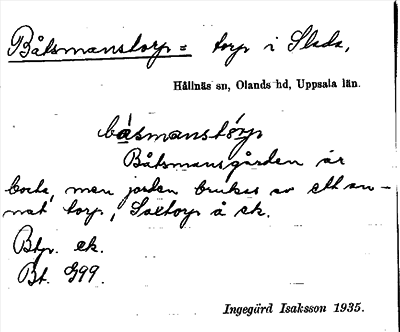 Båtsmanstorp = torp i Slada,
Hållnäs sn, Olands hd, Uppsala län.
båsmanstórp
Båtsmansgården är
borta, men jorden brukas av ett an-
nat torp, Saxtorp å ek.
Btp. ek.
Bt. G99.
Ingegärd Isaksson 1935.